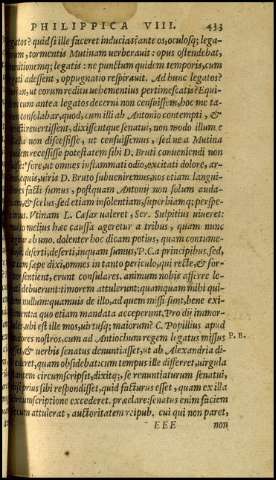 PHILIPPICA VIII. 433
legatos? quid si ille faceret inducias? ante os, oculosq; lega-
rum, tormentis Mutinam uerberauit: opus ostendebat,
munitionemq; legatis: ne punctum quidem temporis, cum
legati adessent, oppugnatio respirauit. Ad hunc legatos?
an ut eorum reditu uehementius pertimescatis? Equi-
dem cum antea legatos decerni non censuissem, hoc me ta-
men consolabar, quod, cum illi ab Antonio contempti, &
reiecti reuertissent, dixissentque senatui, non modo illum e
Gallia non discessisse, ut censuissemus, sed ne a Mutina
quidem recessisse potestatem sibi D. Bruti conueniendi non
fore, ut omnes inflammati odio, excitati dolore, ar-
equis, uiris D. Bruto subueniremus, nos etiam langui-
diores facti sumus, postquam Antonij non solum auda-
& scelus, sed etiam insolentiam, superbiamq; perspe-
ximus. Vtinam L. Cæsar ualeret, Ser. Sulpitius uiueret:
multo melius hæc caussa ageretur a tribus, quam nunc
agitur ab uno. dolenter hoc dicam potius, quam contume-
deserti, deserti, inquam sumus, P. C. a principibus, sed,
sæpe dixi, omnes in tanto periculo, qui recte & for-
sentient, erunt consulares. animum nobis afferre le-
debuerunt: timorem attulerunt: quamquam mihi qui-
nullum: quamuis de illo, ad quem missi sunt, bene exi-
cuius etiam mandata acceperunt. Pro dij immor-
ubi est ille mos, uirtusq; maiorum? C. Popilius apud
maiores nostros, cum ad Antiochum regem legatus missus P. B.
esset, & uerbis senatus denuntiasset, ut ab Alexandria di-
quam obsidebat, cum tempus ille differret, uirgula
stantem circumscripsit, dixitq; se renuntiaturum senatui,
nisi prius sibi respondisset, quid facturus esset, quam ex illa
circumscriptione excederet. præclare: senatus enim faciem
secum attulerat, auctoritatem reipub. cui qui non paret,
EEE non